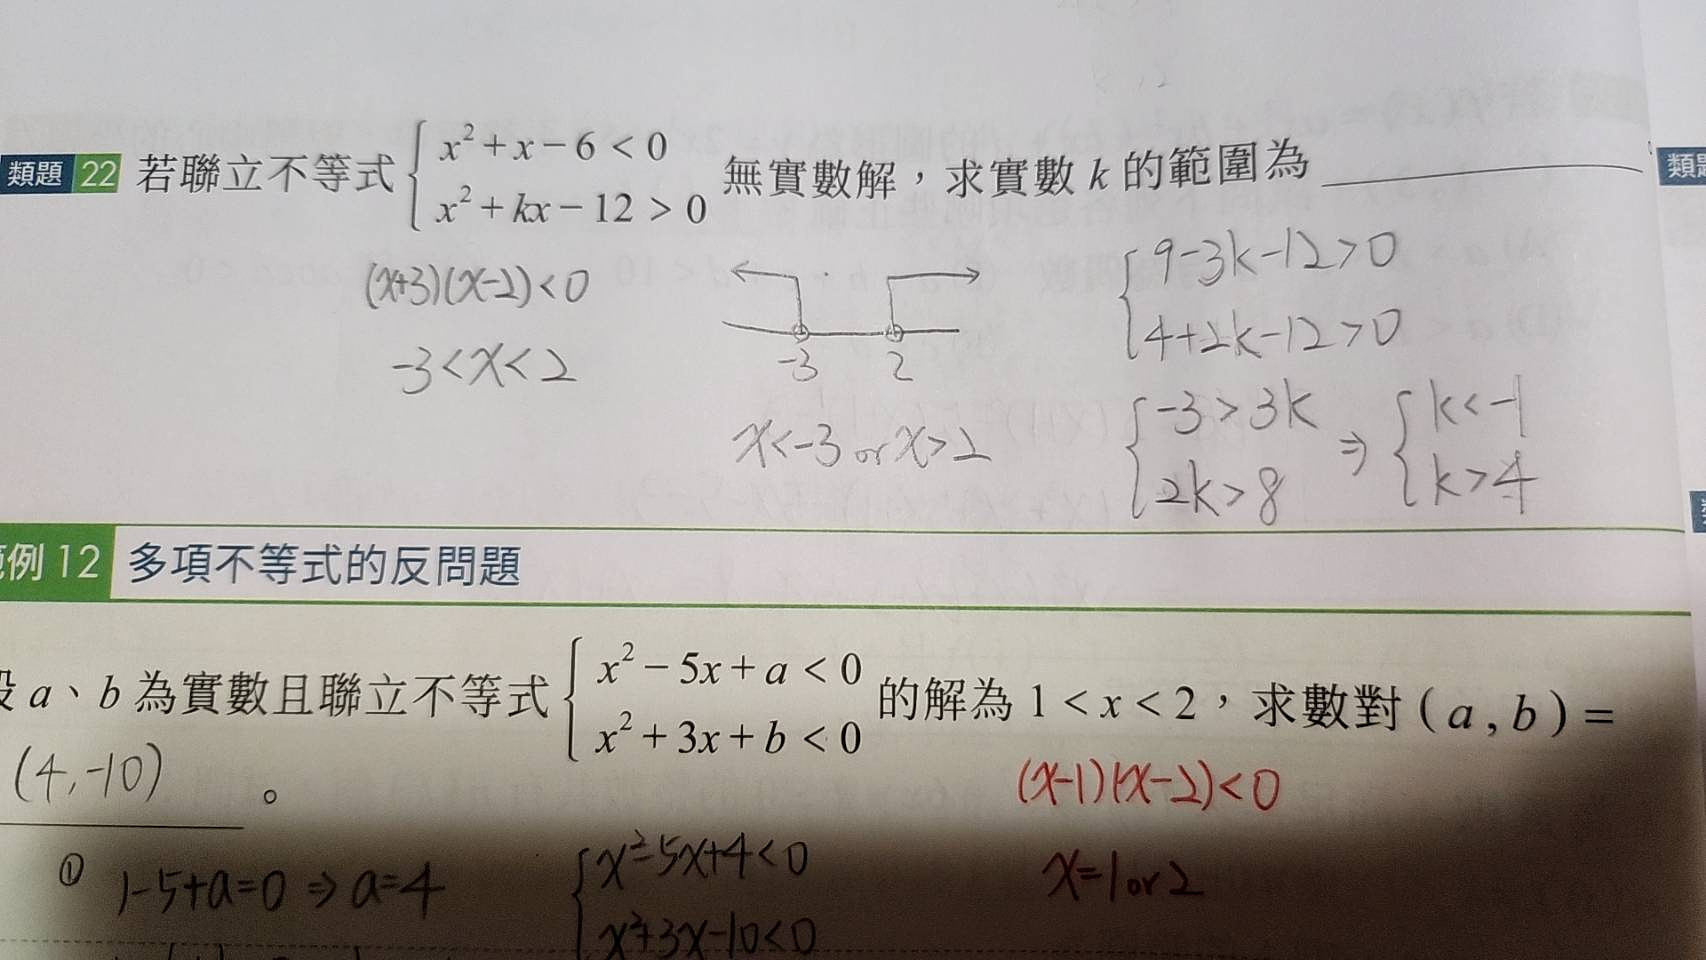 類題 22 若聯立不等式 { x² + x − 6 < 0
x² + kx − 12 > 0 無實數解，求實數 k 的範圍為
類題
(x+3)(x-2)<0
-3<x<2
-3 2
x<-3 or x>2
{ 9-3k-12>0
4+2k-12>0
{ -3>3k
2k>8
⇒ { k<-1
k>4
範例 12 多項不等式的反問題
設 a、b 為實數且聯立不等式 { x² − 5x + a < 0
x² + 3x + b < 0 的解為 1 < x < 2，求數對 ( a , b ) =
(4,-10) 。
(x-1)(x-2)<0
x=1 or 2
① 1-5+a=0 ⇒ a=4
{ x²-5x+4<0
x²+3x-10<0